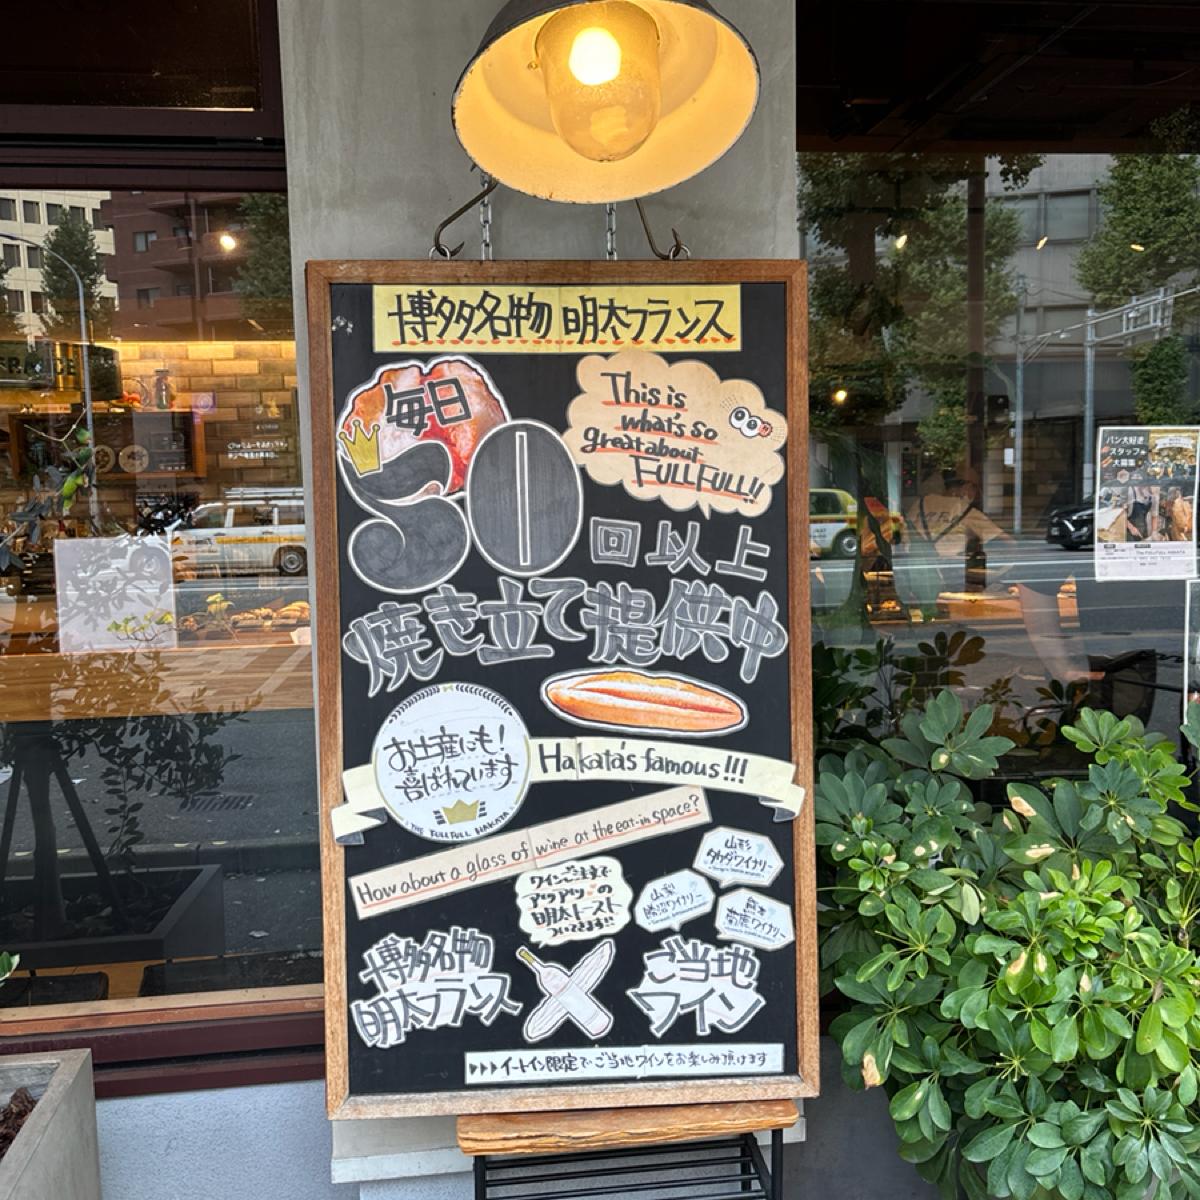 博多名物 明太フランス
毎日
50回以上
焼き立て提供中
This is
what's so
great about
FULLFULL!!
お土産にも!
喜ばれています
THE FULLFULL HAKATA
Hakata's famous!!!
How about a glass of wine at the eat-in space?
ワインご注文で
アツアツの
明太トースト
ついてきます!!
山形
タケダワイナリー
山梨
勝沼ワイナリー
熊本
菊鹿ワイナリー
博多名物
明太フランス
ご当地
ワイン
イートイン限定でご当地ワインをお楽しみ頂けます
パン大好き
スタッフ
大募集
The FULLFULL HAKATA